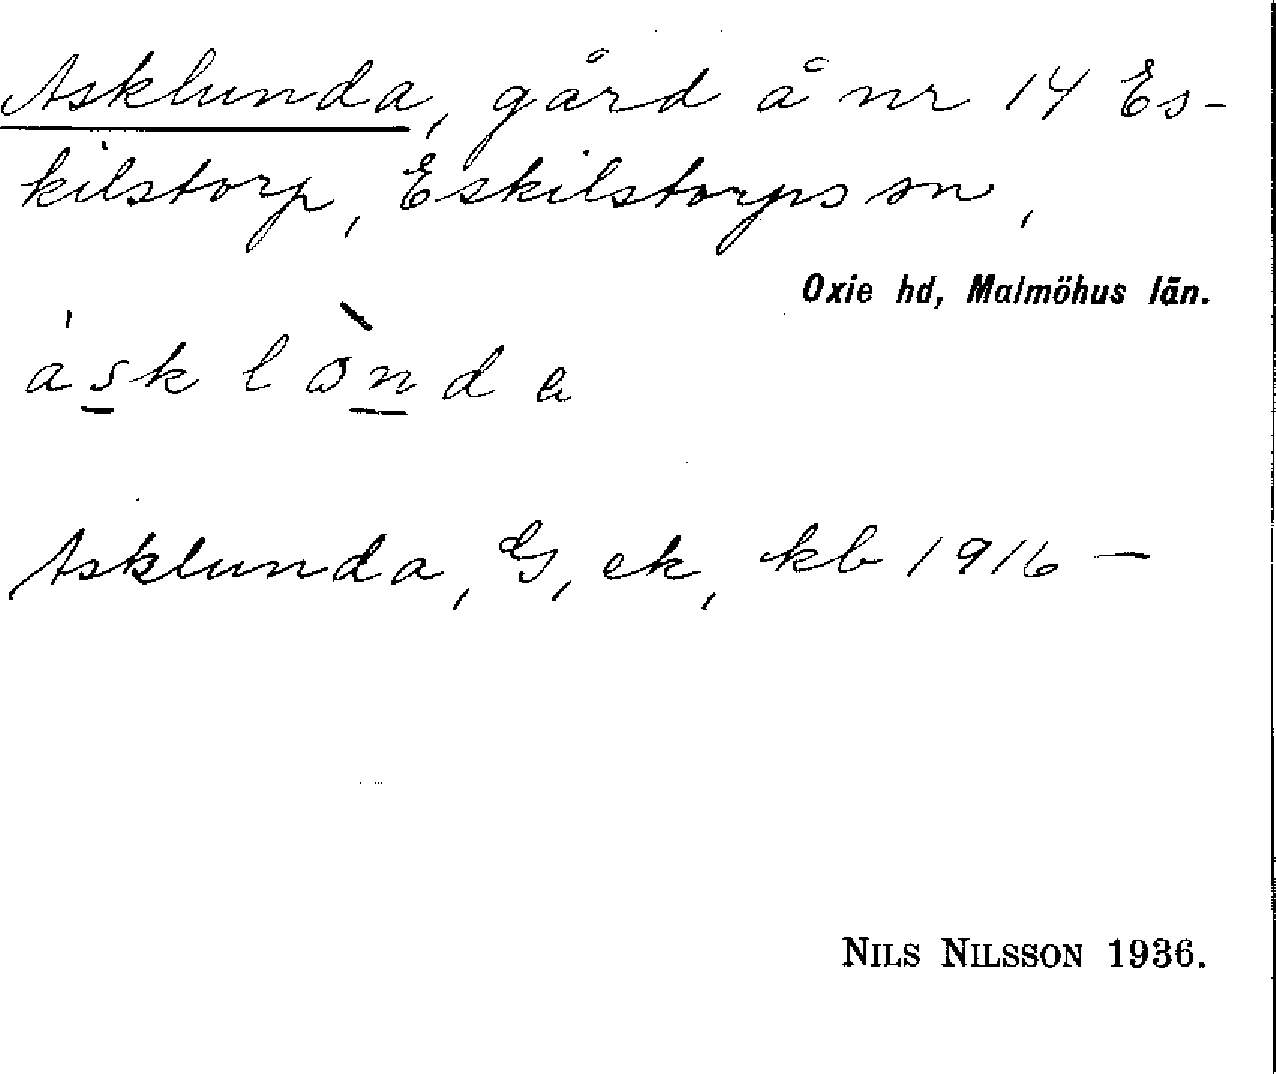 Asklunda, gård å nr 14 Es-
kilstorp, Eskilstorps sn,
Oxie hd, Malmöhus län.
Asklunda, G, ek, kb 1916 –
NILS NILSSON 1936.